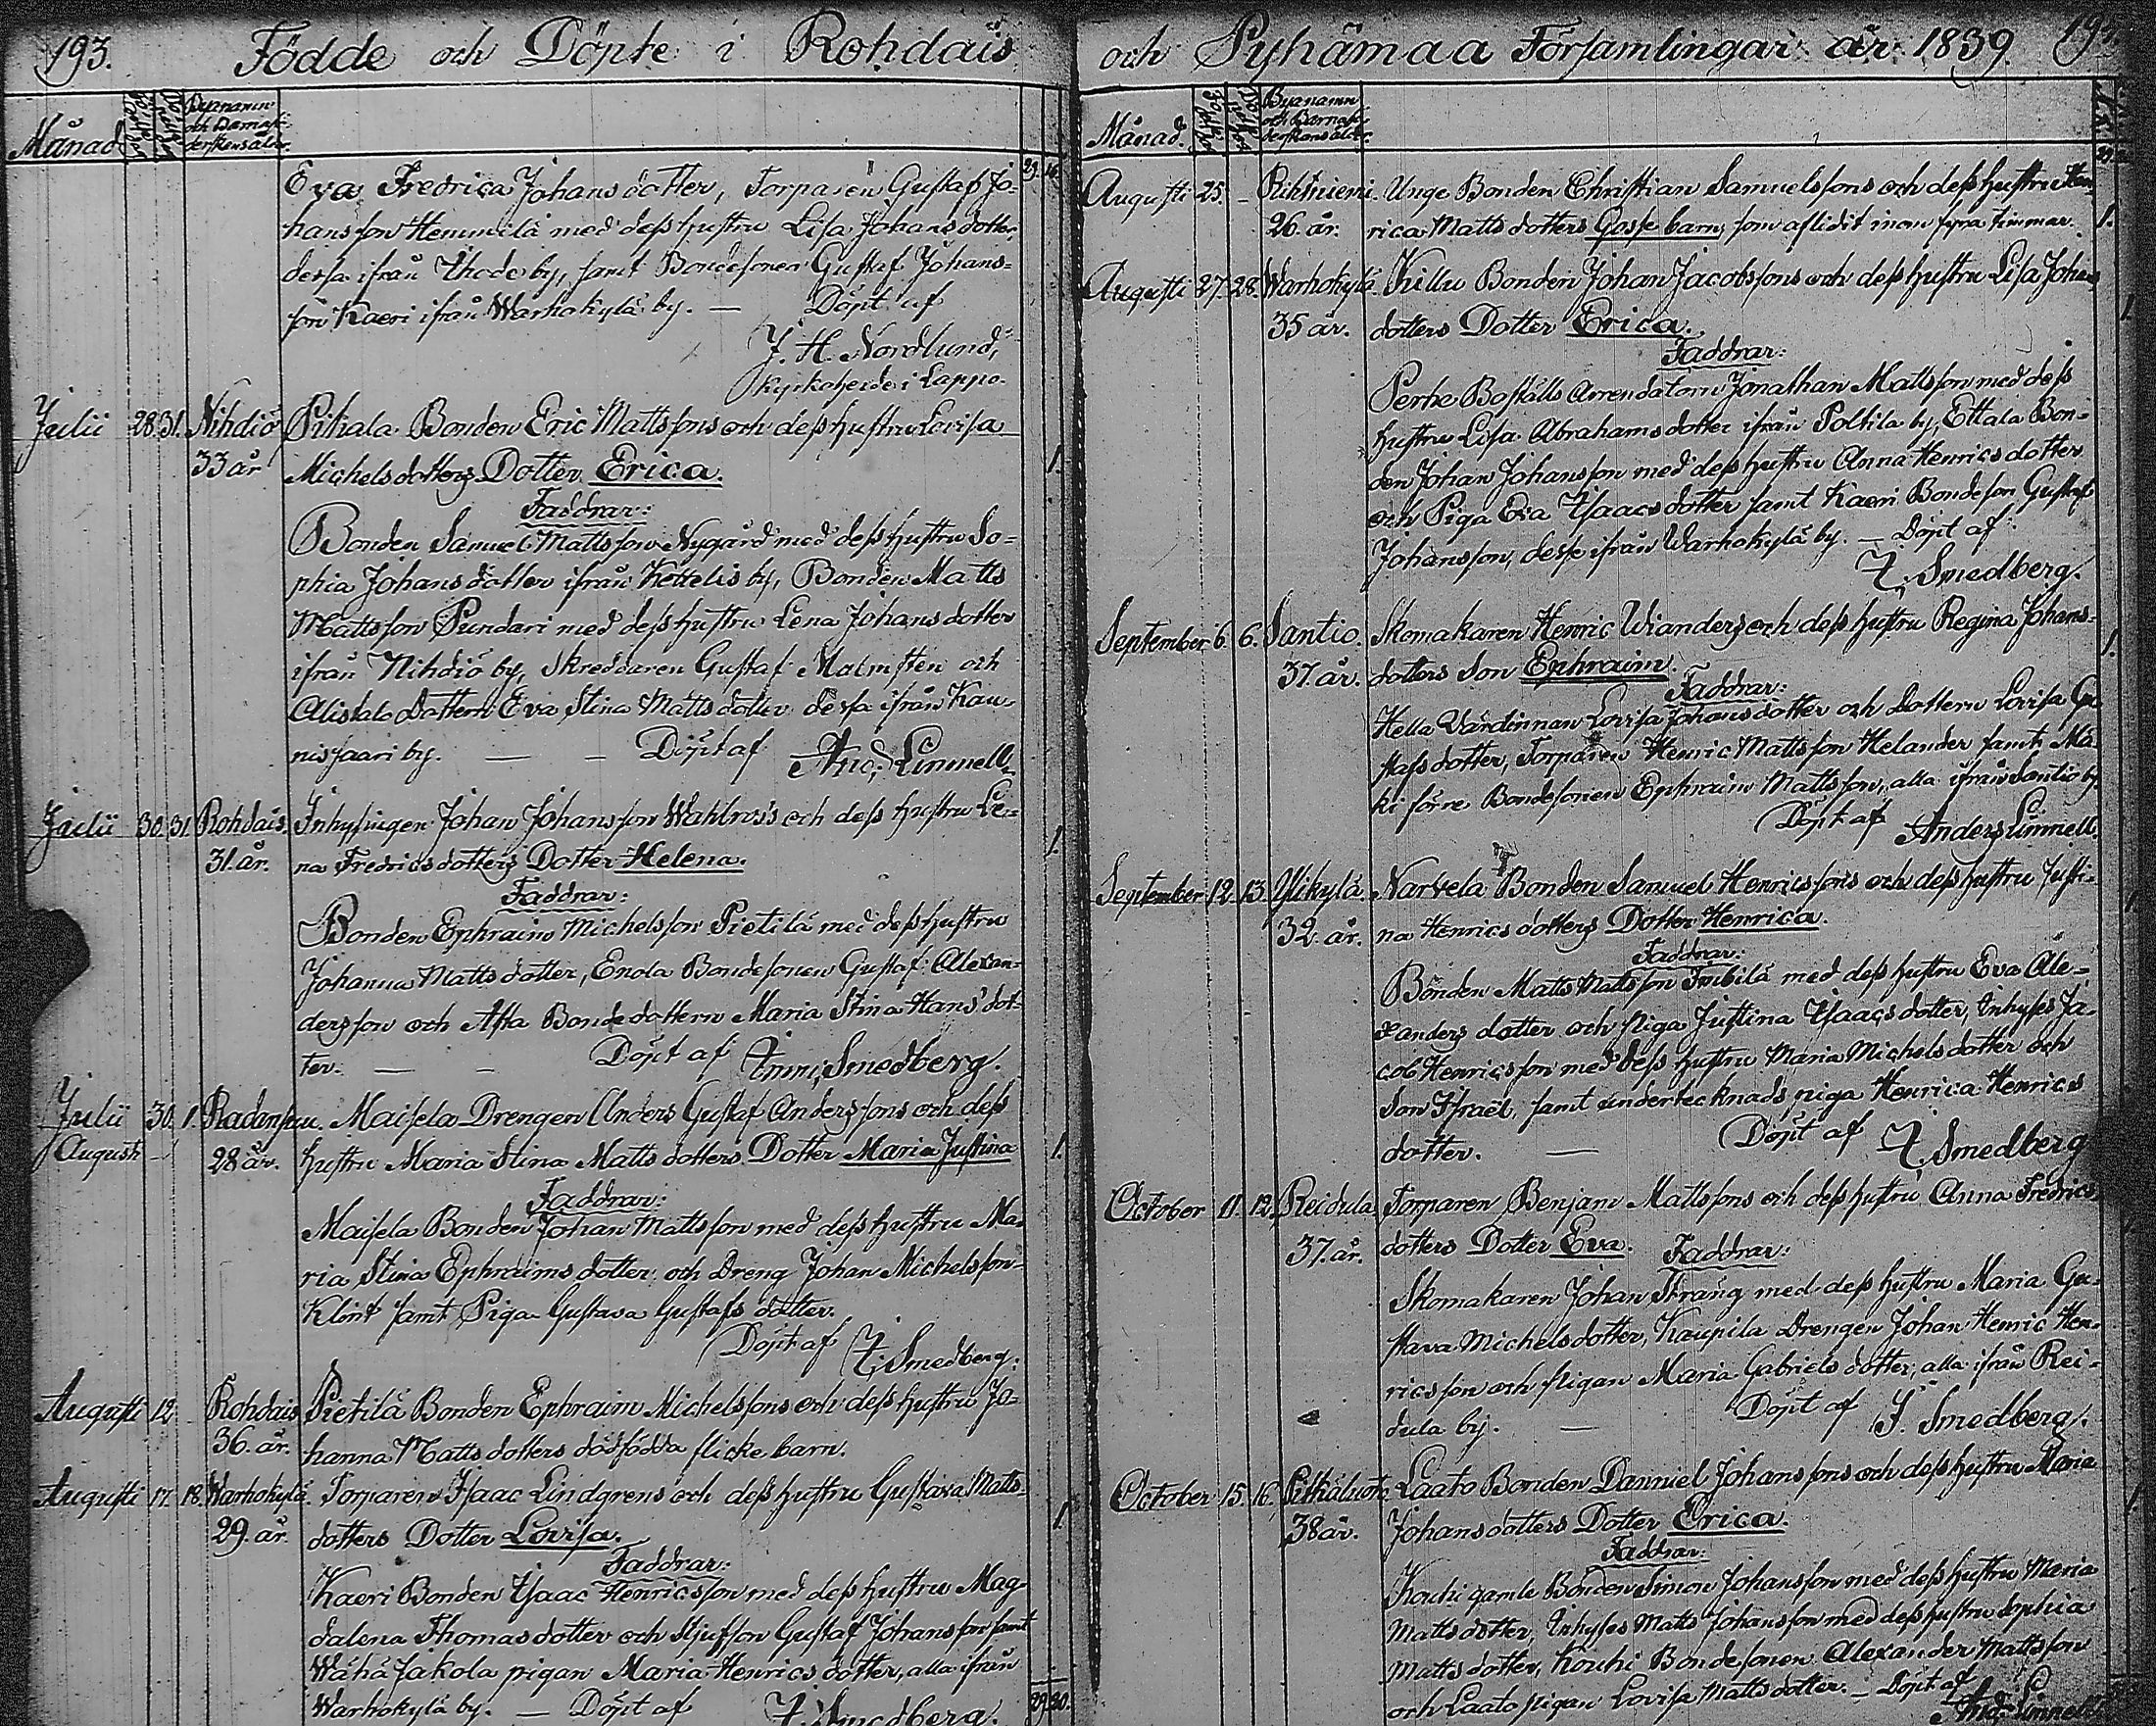 193.
Födde och Döpte i Rohdais
Månad
Byanamn
och Barnaföderskans ålder.
29. 16.
Eva Fredrica Johansdotter, Torparen Gustaf Jo-
hansson Hemmilä med dess hustru Lisa Johansdotter,
dessa ifrån by, samt Bondesonen Gustaf Johans-
son Kaeri ifrån Warhokylä by. — Döpt af
J. H. Nordlund,
Kyrkoherde i Lappo.
Julii 28. 31. Nihdiö Pihala Bonden Eric Mattssons och dess hustru Lovisa
33 år Michelsdotters Dotter Erica. 1.
Faddrar:
Bonden Samuel Mattsson Nygård med dess hustru So-
phia Johansdotter ifrån Kettelis by, Bonden Matts
Mattsson Pundari med dess hustru Lena Johansdotter
ifrån Nihdiö by, Skreddaren Gustaf Malmsten och
Alistalo Dottern Eva Stina Mattsdotter dessa ifrån Kau-
nissaari by. — — Döpt af And. Limnell.
Julii 30. 31. Rohdais Inhysingen Johan Johansson Wahlros's och dess hustru Le-
31. år. na Fredricsdotters Dotter Helena. 1.
Faddrar:
Bonden Ephraim Michelsson Pietilä med dess hustru
Johanna Mattsdotter, Enola Bondesonen Gustaf Alexan-
dersson och Bondedottern Maria Stina Hans'dot-
ter. — - Döpt af Smedberg.
Julii 30. 1. Radansuu. Maisela Drengen Anders Gustaf Anderssons och dess
Augusti — 28 år. hustru Maria Stina Mattsdotters Dotter Maria Justina 1.
Faddrar:
Maisela Bonden Johan Mattsson med dess hustru Ma-
ria Stina Ephraimsdotter och Dreng Johan Michelsson
Klint samt Piga Gustava Gustafsdotter.
Döpt af Smedberg.
Augusti 12. - Rohdais Pietilä Bonden Ephraim Michelssons och dess hustru Jo-
36. år. hanna Mattsdotters dödfödda flickebarn.
Augusti 17. 18. Warhokylä. Torparen Isaac Lindgrens och dess hustru Gustava Matts-
29. år. dotters Dotter Lovisa. 1.
Faddrar:
Kaeri Bonden Isaac Henricsson med dess hustru Mag-
dalena Thomasdotter och Stjufson Gustaf Johansson samt
Wähä Jakola pigan Maria Henricsdotter, alla ifrån
Warhokylä by. — Döpt af Smedberg. 29. 20.
och Pyhämaa Församlingar år 1839.
Månad.
Byanamn
och Barnaföderskans ålder.
Augusti 25. - Rihtniemi. Unge Bonden Christian Samuelssons och dess hustru Hen-
26. år. rica Mattsdotters Gosse barn, som aflidit inom fyra timmar. 1.
Augusti 27. 28. Warhokylä. Killu Bonden Johan Jacobssons och dess hustru Lisa Johans
35 år. dotters Dotter Erica. 1.
Faddrar:
Perhe Boställs Arrendatorn Jonathan Mattsson med dess
hustru Lisa Abrahamsdotter ifrån Poltila by, Ettala Bon-
den Johan Johansson med dess hustru Anna Henricsdotter
och Piga Eva Isaacsdotter samt Kaeri Bondeson Gustaf
Johansson, desse ifrån Warhokylä by. — Döpt af
Smedberg.
September 6. 6. Santio. Skomakaren Henric Wianders och dess hustru Regina Johans-
37. år. dotters Son Ephraim. 1.
Faddrar:
Hella Värdinnan Lovisa Johansdotter och Dottern Lovisa Gu-
stafsdotter, Torparen Henric Mattsson Helander samt Mä-
ki förre Bondesonen Ephraim Mattsson, alla ifrån Santio by.
Döpt af Anders Limnell.
September 12. 13. Ylikylä. Narvela Bonden Samuel Henricssons och dess hustru Justi-
32. år. na Henricsdotters Dotter Henrica.
Faddrar:
Bonden Matts Mattsson med dess hustru Eva Ale-
xandersdotter och piga Justina Isaacsdotter, Inhyses Ja-
cob Henricsson med dess hustru Maria Michelsdotter och
Son Israël, samt undertecknads piga Henrica Henrics
dotter. — Döpt af Smedberg
October 11. 12. Reidula Torparen Benjam Mattssons och dess hustru Anna Fredrics
37. år. dotters Dotter Eva. Faddrar:
Skomakaren Johan Sträng med dess hustru Maria Gu-
stava Michelsdotter, Kaupila Drengen Johan Henric Hen-
ricsson och pigan Maria Gabrielsdotter, alla ifrån Rei-
dula by. — Döpt af Smedberg.
October 15. 16. Pitkäluoto Laato Bonden Danniel Johanssons och dess hustru Maria
38 år. Johansdotters Dotter Erica. 1.
Faddrar:
Kouhi gamle Bonden Simon Johansson med dess hustru Maria
Mattsdotter, Inhyses Matts Johansson med dess hustru Sophia
Mattsdotter, Kouhi Bondesonen Alexander Mattsson
och Laato pigan Lovisa Mattsdotter. — Döpt af
And. Limnell.